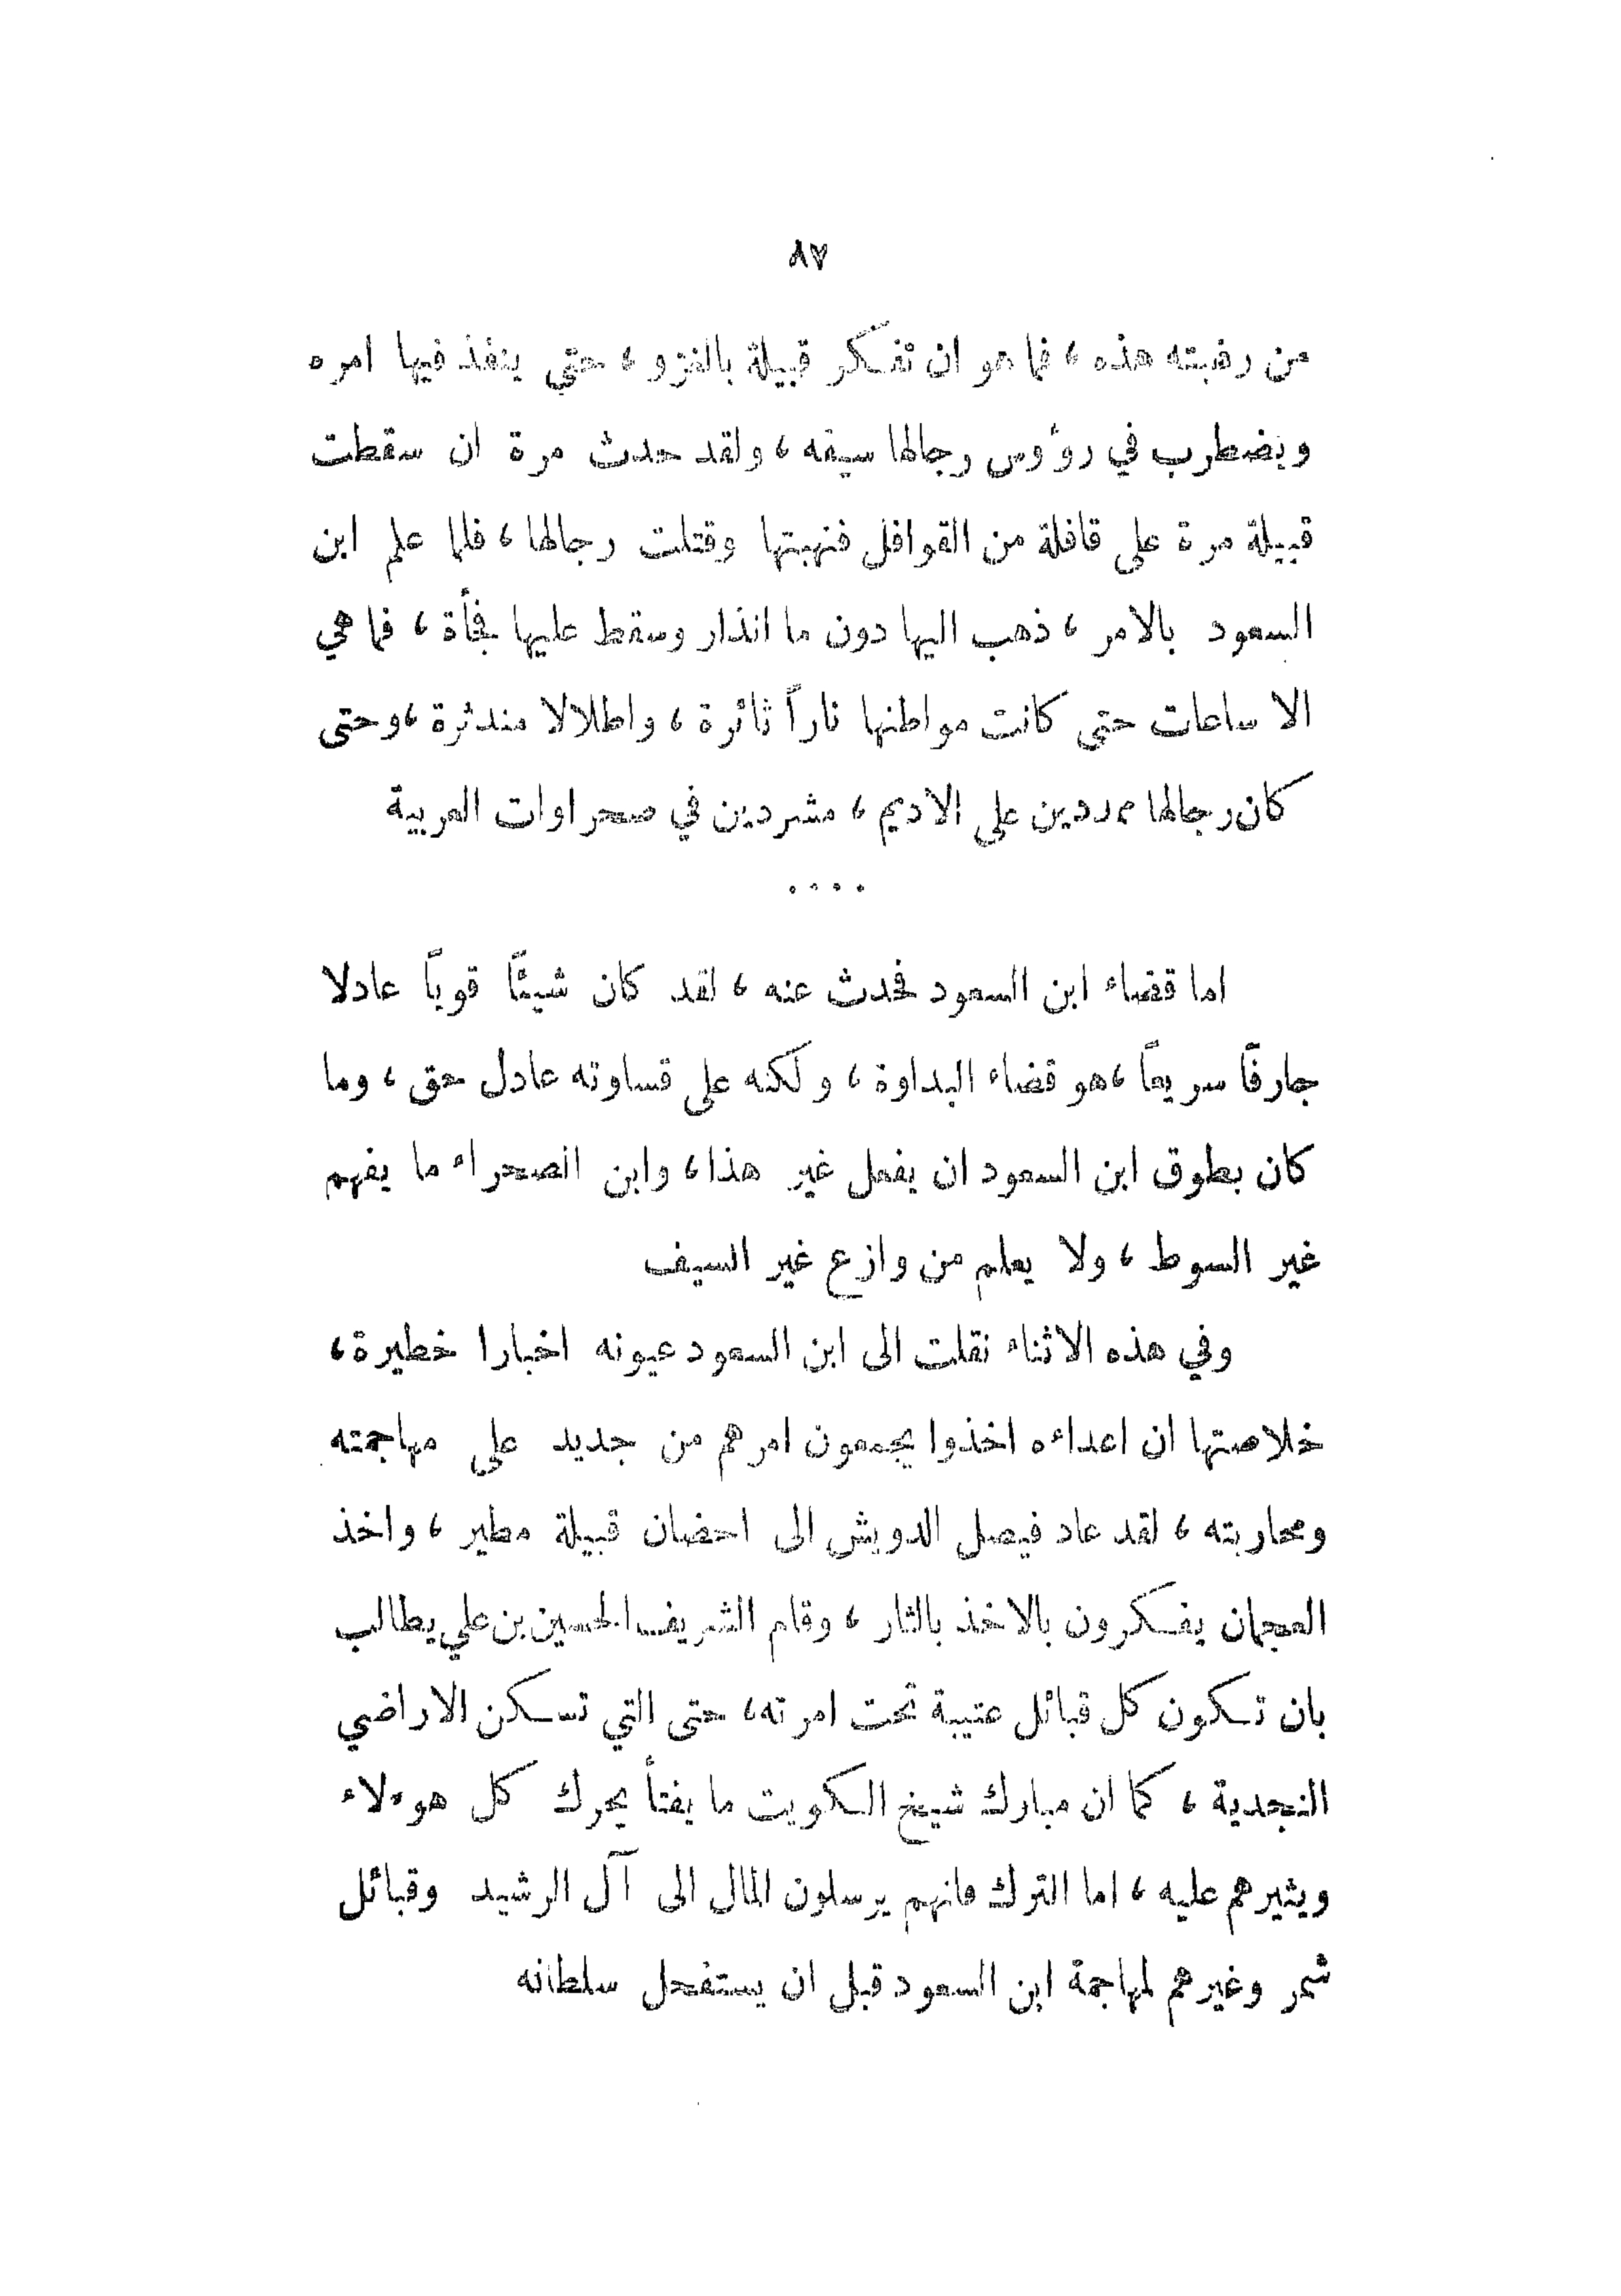 ٨٧
من رهبته هذه ، فما هو ان تفكر قبيلة بالغزو ، حتى ينفذ فيها امره
ويضطرب في رؤوس رجالها سيفه ، ولقد حدث مرة ان سقطت
قبيلة مرة على قافلة من القوافل فنهبتها وقتلت رجالها ، فلما علم ابن
السعود بالامر ، ذهب اليها دون ما انذار وسقط عليها فجأة ، فما هي
الا ساعات حتى كانت مواطنها ناراً ثائرة ، واطلالا مندثرة ، وحتى
كان رجالها ممددين على الاديم ، مشردين في صحراوات العربية
. . . .
اما قضاء ابن السعود فحدث عنه ، لقد كان شيئاً قوياً عادلا
جارفاً سريعاً ، هو قضاء البداوة ، ولكنه على قساوته عادل حق ، وما
كان بطوق ابن السعود ان يفعل غير هذا ، وابن الصحراء ما يفهم
غير السوط ، ولا يعلم من وازع غير السيف
وفي هذه الاثناء نقلت الى ابن السعود عيونه اخبارا خطيرة ،
خلاصتها ان اعداءه اخذوا يجمعون امرهم من جديد على مهاجمته
ومحاربته ، لقد عاد فيصل الدويش الى احضان قبيلة مطير ، واخذ
العجمان يفكرون بالاخذ بالثار ، وقام الشريف الحسين بن علي يطالب
بان تكون كل قبائل عتيبة تحت امرته ، حتى التي تسكن الاراضي
النجدية ، كما ان مبارك شيخ الكويت ما يفتأ يحرك كل هوءلاء
ويثيرهم عليه ، اما الترك فانهم يرسلون المال الى آل الرشيد وقبائل
شمر وغيرهم لمهاجمة ابن السعود قبل ان يستفحل سلطانه